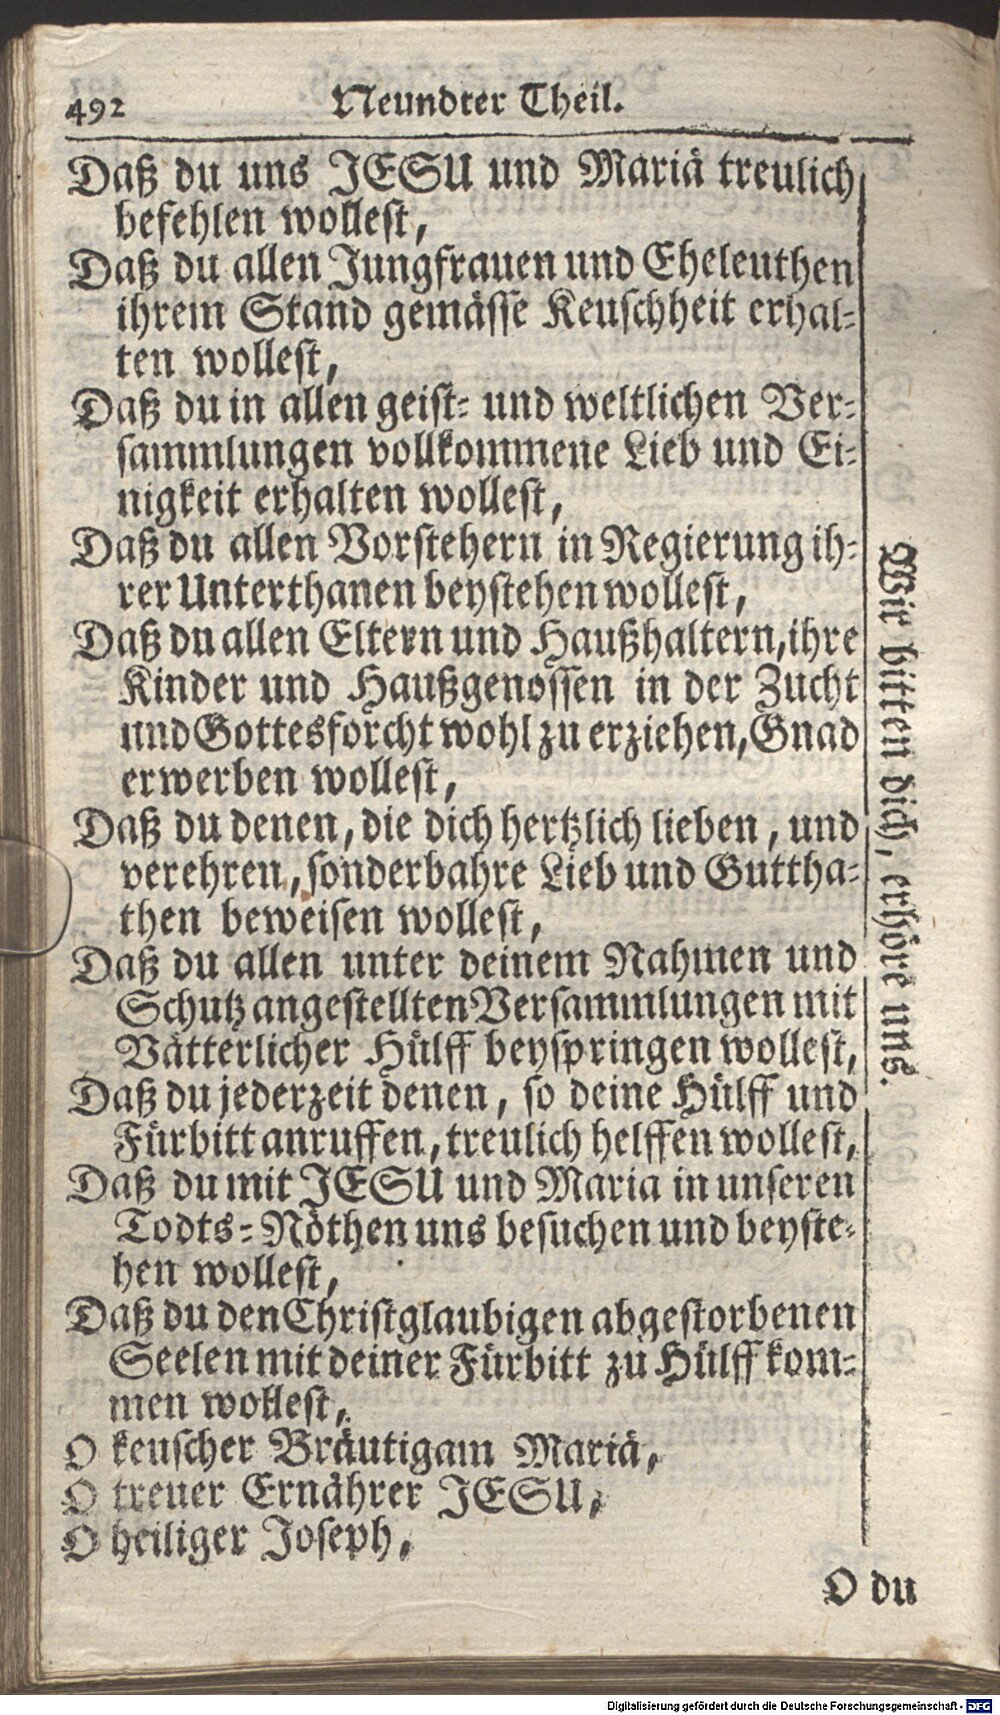 492 Neundter Theil.
Daß du uns JESU und Mariä treulich
befehlen wollest,
Daß du allen Jungfrauen und Eheleuthen
ihrem Stand gemässe Keuschheit erhal-
ten wollest,
Daß du in allen geist- und weltlichen Ver-
sammlungen vollkommene Lieb und Ei-
nigkeit erhalten wollest,
Daß du allen Vorstehern in Regierung ih-
rer Unterthanen beystehen wollest,
Daß du allen Eltern und Haußhaltern, ihre
Kinder und Haußgenossen in der Zucht
und Gottesforcht wohl zu erziehen, Gnad
erwerben wollest,
Daß du denen, die dich hertzlich lieben, und
verehren, sonderbahre Lieb und Guttha-
then beweisen wollest,
Daß du allen unter deinem Nahmen und
Schutz angestellten Versammlungen mit
Vätterlicher Hülff beyspringen wollest,
Daß du jederzeit denen, so deine Hülff und
Fürbitt anruffen, treulich helffen wollest,
Daß du mit JESU und Maria in unseren
Todts-Nöthen uns besuchen und beyste-
hen wollest,
Daß du den Christglaubigen abgestorbenen
Seelen mit deiner Fürbitt zu Hülff kom-
men wollest,
O keuscher Bräutigam Mariä,
O treuer Ernährer JESU,
O heiliger Joseph,
Wir bitten dich, erhöre uns.
O du
Digitalisierung gefördert durch die Deutsche Forschungsgemeinschaft - DFG